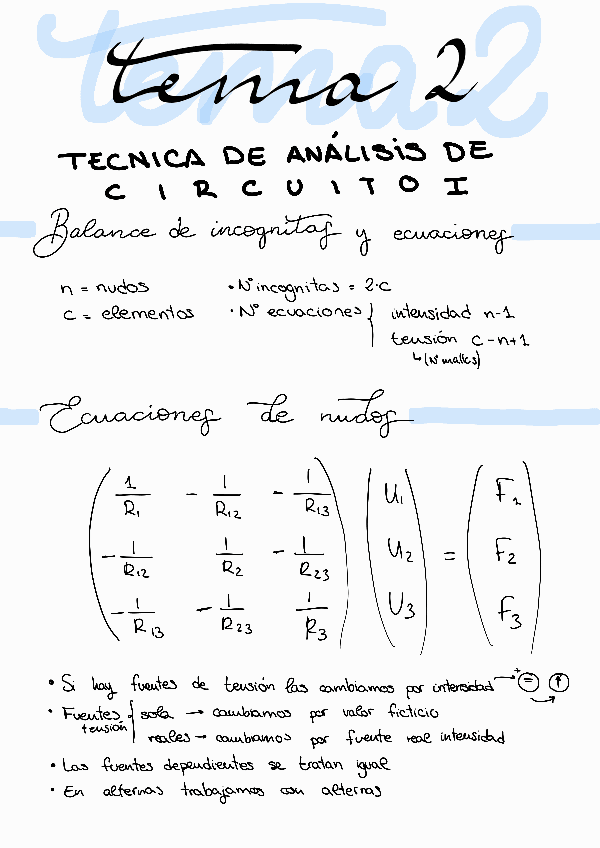 tema 2
TECNICA DE ANÁLISIS DE
CIRCUITO I
Balance de incognitas y ecuaciones
n = nudos
· Nº incognitas = 2·c
c = elementos
· Nº ecuaciones { intensidad n-1
tensión c-n+1
↳ (Nº mallas)
Ecuaciones de nudos
( 1/R1 - 1/R12 - 1/R13 ) ( U1 ) ( F1 )
( - 1/R12 1/R2 - 1/R23 ) ( U2 ) = ( F2 )
( - 1/R13 - 1/R23 1/R3 ) ( U3 ) ( F3 )
• Si hay fuentes de tensión las cambiamos por intensidad → + = ↑
• Fuentes tensión { sola → cambiamos por valor ficticio
reales → cambiamos por fuente real intensidad
• Las fuentes dependientes se tratan igual
• En alternas trabajamos con alternas